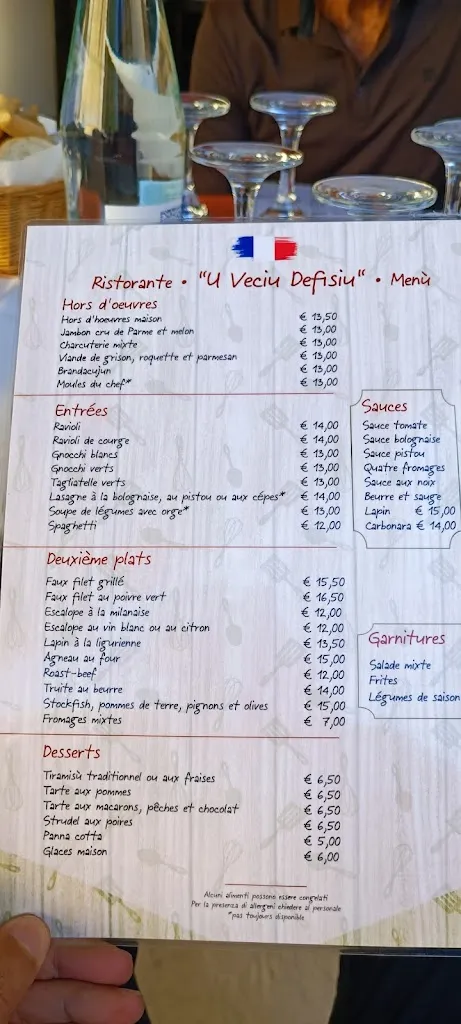 Ristorante • "U Veciu Defisiu" • Menù
Hors d'oeuvres
Hors d'hoeuvres maison € 13,50
Jambon cru de Parme et melon € 13,00
Charcuterie mixte € 13,00
Viande de grison, roquette et parmesan € 13,00
Brandacujun € 13,00
Moules du chef* € 13,00
Entrées
Ravioli € 14,00
Ravioli de courge € 14,00
Gnocchi blancs € 13,00
Gnocchi verts € 13,00
Tagliatelle verts € 13,00
Lasagne à la bolognaise, au pistou ou aux cépes* € 14,00
Soupe de légumes avec orge* € 13,00
Spaghetti € 12,00
Sauces
Sauce tomate
Sauce bolognaise
Sauce pistou
Quatre fromages
Sauce aux noix
Beurre et sauge
Lapin € 15,00
Carbonara € 14,00
Deuxième plats
Faux filet grillé € 15,50
Faux filet au poivre vert € 16,50
Escalope à la milanaise € 12,00
Escalope au vin blanc ou au citron € 12,00
Lapin à la ligurienne € 13,50
Agneau au four € 15,00
Roast-beef € 12,00
Truite au beurre € 14,00
Stockfish, pommes de terre, pignons et olives € 15,00
Fromages mixtes € 7,00
Garnitures
Salade mixte
Frites
Légumes de saison
Desserts
Tiramisù traditionnel ou aux fraises € 6,50
Tarte aux pommes € 6,50
Tarte aux macarons, pêches et chocolat € 6,50
Strudel aux poires € 6,50
Panna cotta € 5,00
Glaces maison € 6,00
Alcuni alimenti possono essere congelati
Per la presenza di allergeni chiedere al personale
*pas toujours disponible